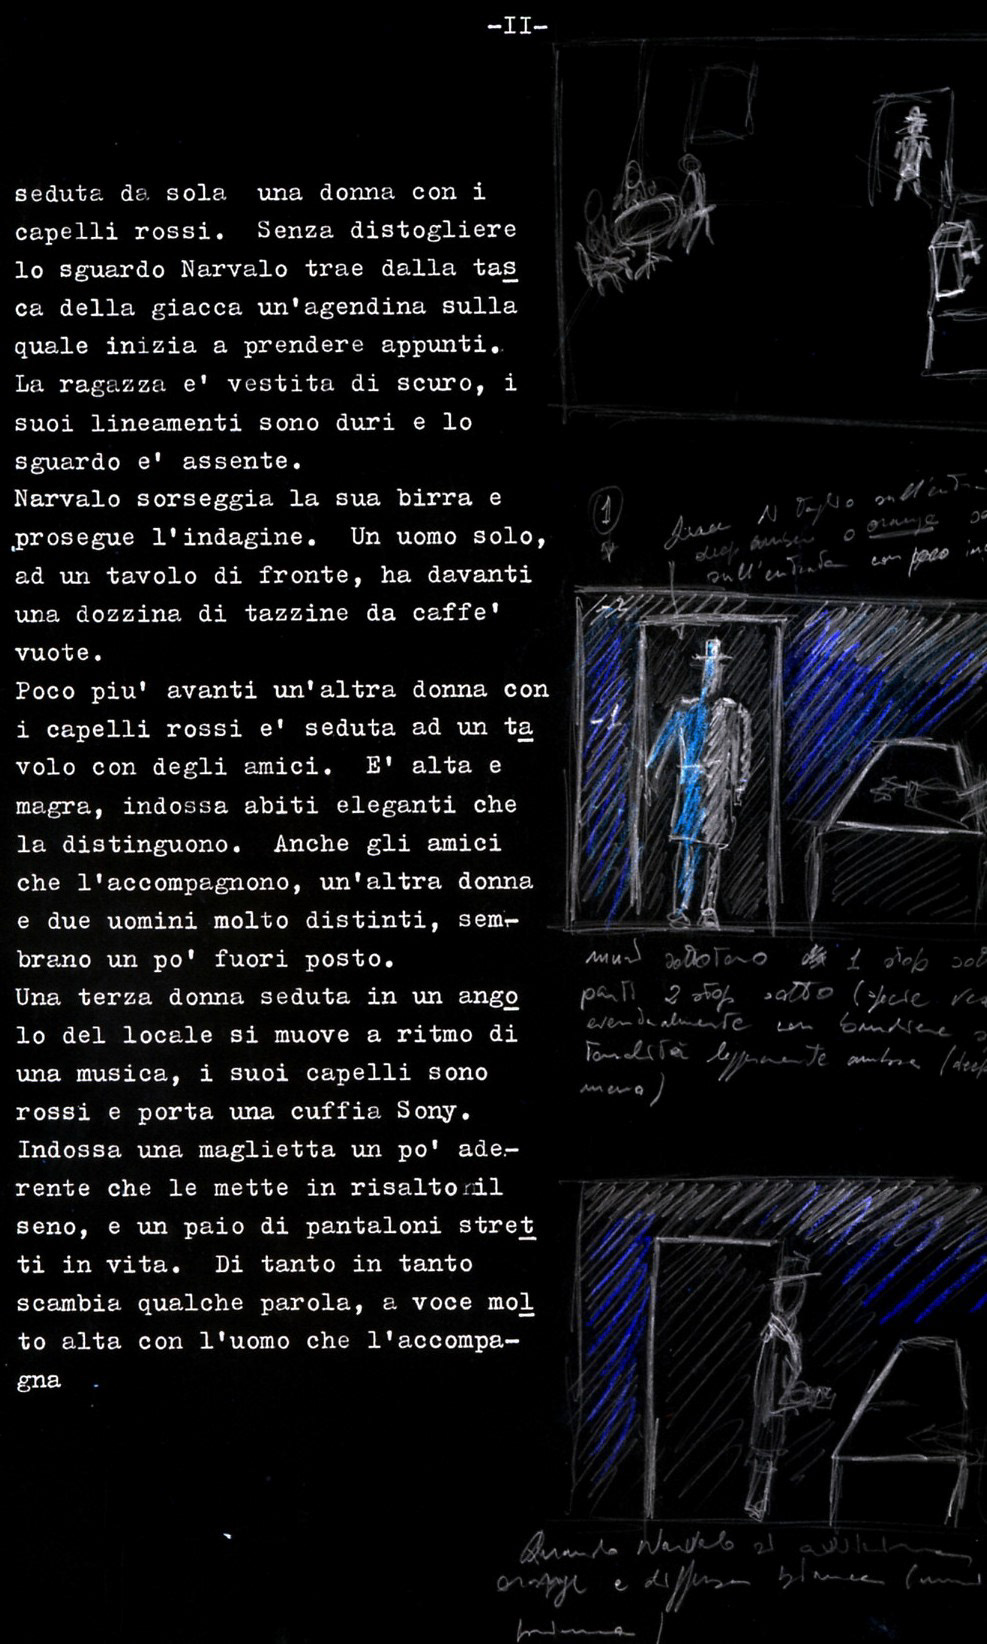 -II-
seduta da sola una donna con i
capelli rossi. Senza distogliere
lo sguardo Narvalo trae dalla tas
ca della giacca un'agendina sulla
quale inizia a prendere appunti.
La ragazza e' vestita di scuro, i
suoi lineamenti sono duri e lo
sguardo e' assente.
Narvalo sorseggia la sua birra e
prosegue l'indagine. Un uomo solo,
ad un tavolo di fronte, ha davanti
una dozzina di tazzine da caffe'
vuote.
Poco piu' avanti un'altra donna con
i capelli rossi e' seduta ad un ta
volo con degli amici. E' alta e
magra, indossa abiti eleganti che
la distinguono. Anche gli amici
che l'accompagnono, un'altra donna
e due uomini molto distinti, sem-
brano un po' fuori posto.
Una terza donna seduta in un ango
lo del locale si muove a ritmo di
una musica, i suoi capelli sono
rossi e porta una cuffia Sony.
Indossa una maglietta un po' ade-
rente che le mette in risalto il
seno, e un paio di pantaloni stret
ti in vita. Di tanto in tanto
scambia qualche parola, a voce mol
to alta con l'uomo che l'accompa-
gna
1
luce di taglio sull'entra
deep amber o orange
sull'entrata con poco
-2
-1
muri sottotono 1 stop sot
parti 2 stop sotto (specie
eventualmente con bandiere
tonalità leggermente ambra (deep
meno)
Quando Narvalo si
orange e diffusa bianca
prima)